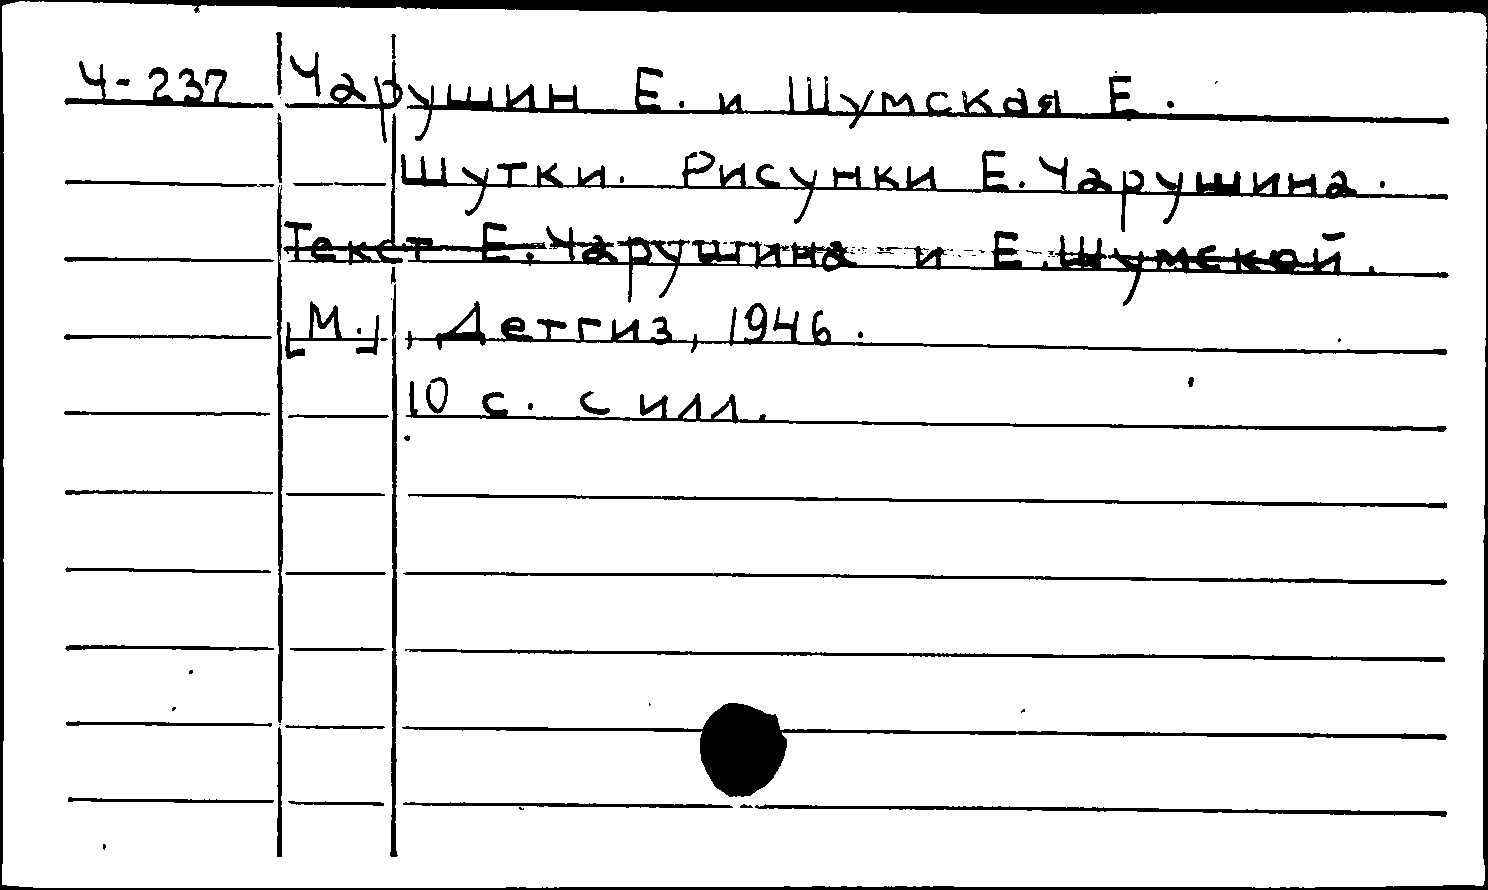 Ч-237 Чарушин Е. и Шумская Е.
Шутки. Рисунки Е. Чарушина.
Текст Е. Чарушина и Е. Шумской.
[М.], Детгиз, 1946.
10 с. с илл.